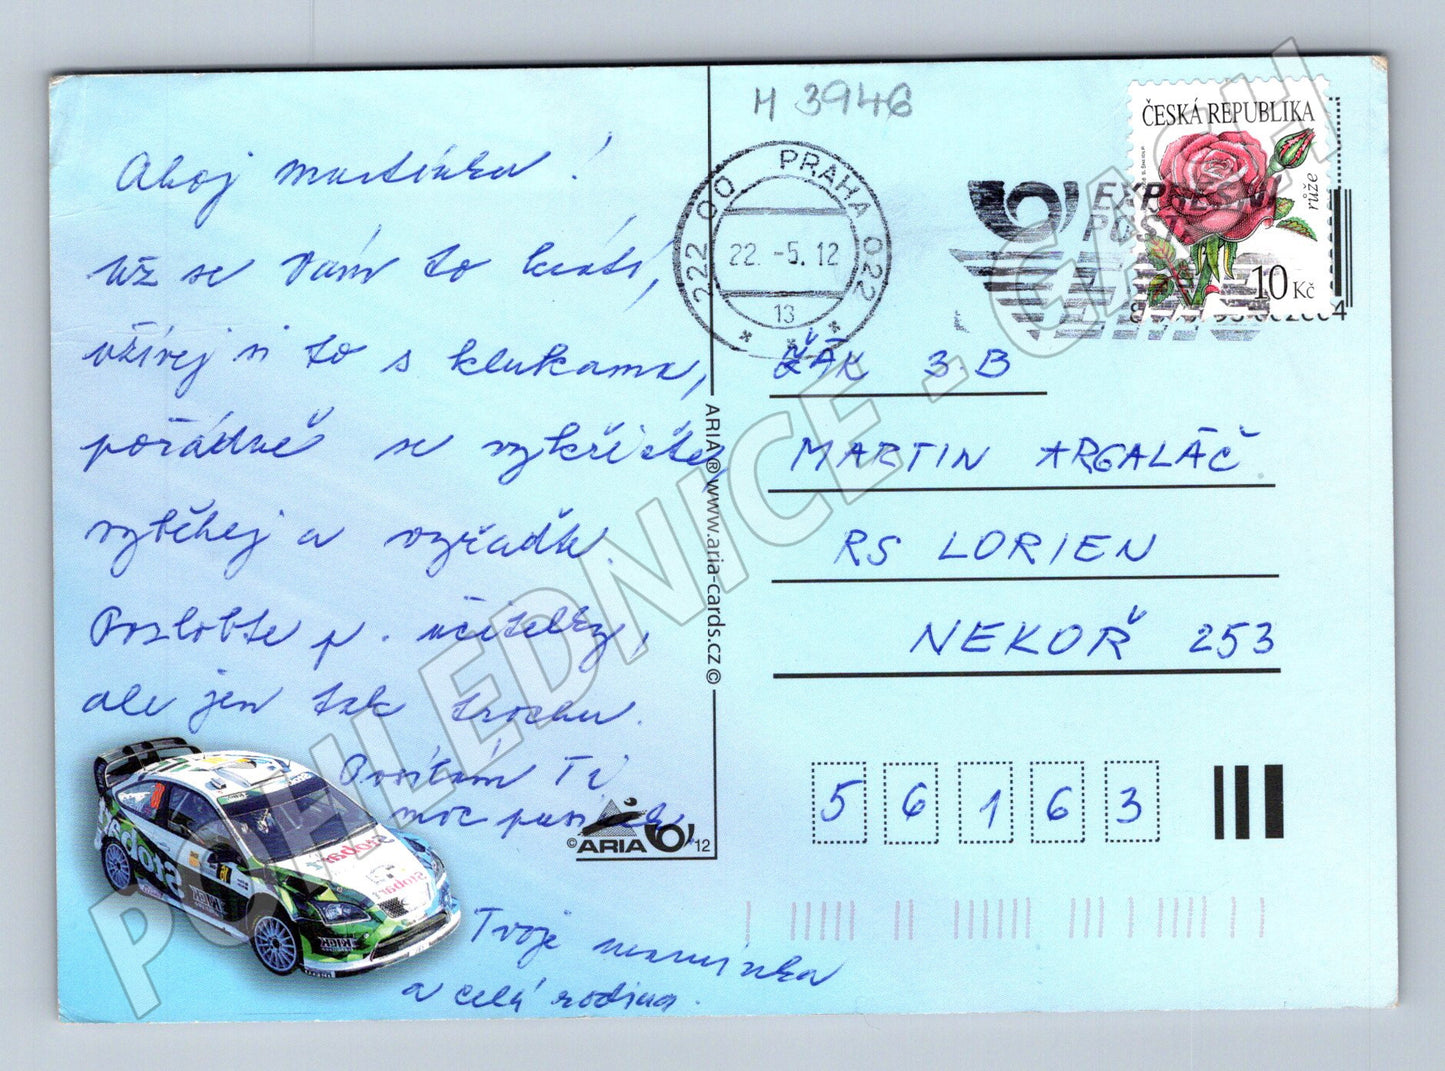 M 3946
ČESKÁ REPUBLIKA
růže
10 Kč
222 00 PRAHA 022
22. -5. 12
13
EXPRESNÍ
POŠT
Ahoj Martínku!
už se Vám to krátí,
užívej si to s klukama,
pořádně se vykřičte,
vyběhej a vyřaďte.
Pozlobte p. učitelky,
ale jen tak trochu.
Posílám Ti
moc pusinek
Tvoje maminka
a celá rodina.
ŽÁK 3.B
MARTIN ARGALÁČ
RS LORIEN
NEKOŘ 253
56163
ARIA® www.aria-cards.cz ©
© ARIA 12
Stobart
POHLEDNICE.CASH